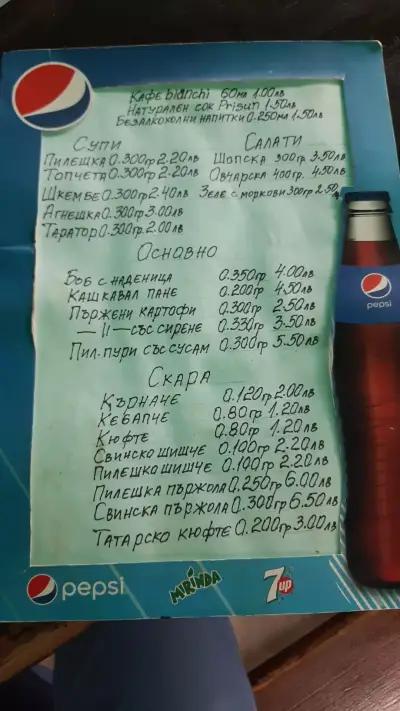 Кафе bianchi 60мл 1.00лв
Натурален сок Prisun 1.50лв
Безалкохолни напитки 0.250мл 1.50лв
Супи
Пилешка 0.300гр 2.20лв
Топчета 0.300гр 2.20лв
Шкембе 0.300гр 2.40лв
Агнешка 0.300гр 3.00лв
Таратор 0.300гр 2.00лв
Салати
Шопска 300гр 3.50лв
Овчарска 400гр. 4.50лв
Зеле с моркови 300гр 2.50
Основно
Боб с наденица 0.350гр 4.00лв
Кашкавал пане 0.200гр 4.50лв
Пържени картофи 0.300гр 2.50лв
— 11 — със сирене 0.330гр 3.50лв
Пил. пури със сусам 0.300гр 5.50лв
Скара
Кърначе 0.120гр 2.00лв
Кебапче 0.80гр 1.20лв
Кюфте 0.80гр 1.20лв
Свинско шишче 0.100гр 2.20лв
Пилешко шишче 0.100гр 2.20лв
Пилешка пържола 0.250гр 6.00лв
Свинска пържола 0.300гр 6.50лв
Татарско кюфте 0.200гр 3.00лв
pepsi
pepsi
MIRINDA
7up